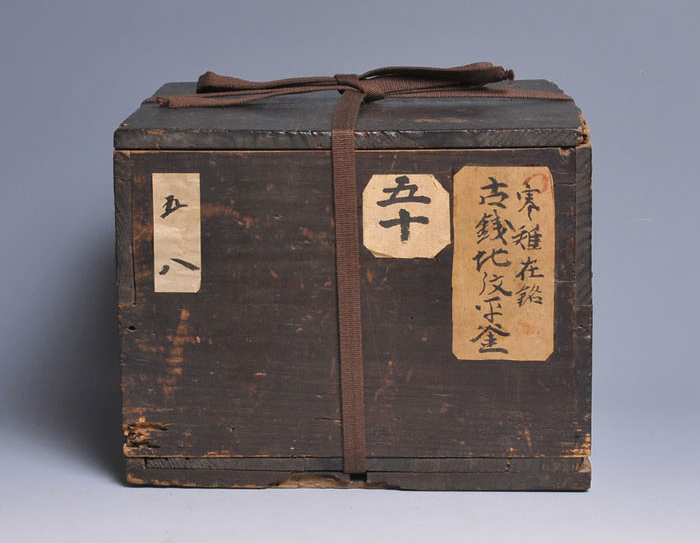 寒雉在銘
古銭地紋平釜
五十
五八